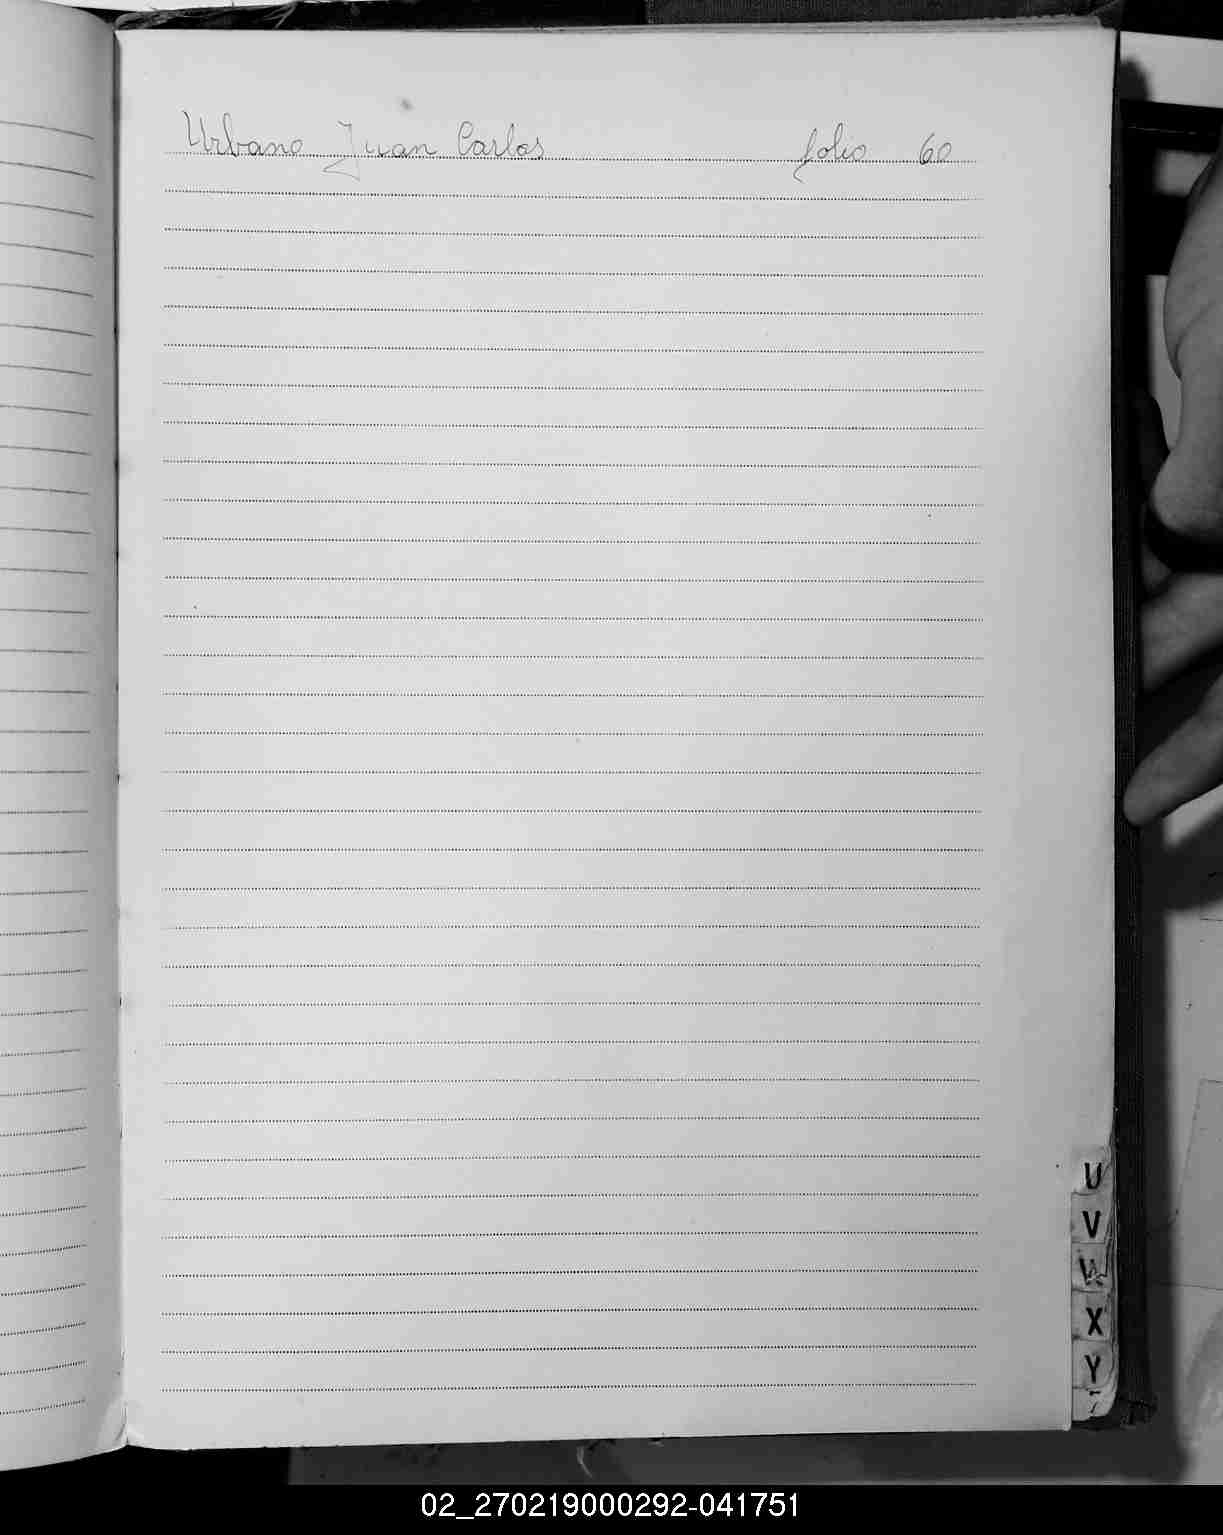 Urbano Juan Carlos folio 60
U
V
W
X
Y
02_270219000292-041751